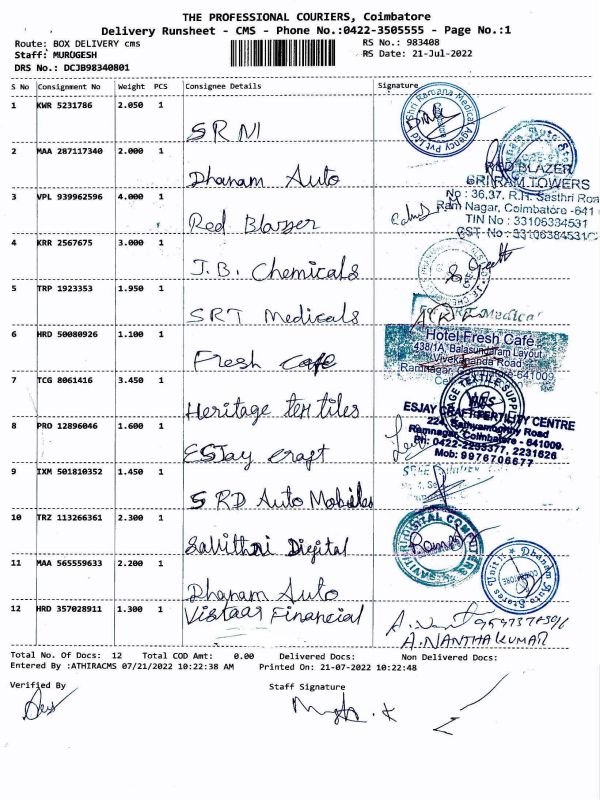 THE PROFESSIONAL COURIERS, Coimbatore
Delivery Runsheet - CMS - Phone No.:0422-3505555 - Page No.:1
Route: BOX DELIVERY cms
RS No.: 983408
Staff: MURUGESH
RS Date: 21-Jul-2022
DRS No.: DCJB98340801
S No Consignment No Weight PCS Consignee Details Signature
1 KWR 5231786 2.050 1
SRM
2 MAA 287117340 2.000 1
Dhanam Auto
3 VPL 939962596 4.000 1
Red Blazzer
4 KRR 2567675 3.000 1
J.B. Chemicals
5 TRP 1923353 1.950 1
SRT Medicals
6 HRD 50080926 1.100 1
Fresh Cafe
7 TCG 8061416 3.450 1
Heritage textiles
8 PRO 12896046 1.600 1
ESJay craft
9 IXM 501810352 1.450 1
SRD Auto Mobiles
10 TRZ 113266361 2.300 1
Savithri Digital
11 MAA 565559633 2.200 1
Dhanam Auto
12 HRD 357028911 1.300 1
Vistaar Financial
Shri Ramana Medical Agency Pvt Ltd
RED BLAZER
SRI RAM TOWERS
No : 36,37, R.H. Sasthri Road
Ram Nagar, Coimbatore -641
TIN No : 33106384531
CST No : 33106384531
Medical
Hotel Fresh Cafe
438/1A, Balasundaram Layout
Vivekananda Road
Ramnagar, Coimbatore-641009
ESJAY CRAFT FERTILITY CENTRE
224, Sathyamoorthy Road
Ramnagar, Coimbatore - 641009.
Ph: 0422-2233377, 2231626
Mob: 9976706677
Dhanam Auto Stores Unit II
COIMBATORE
A.NANTHAKUMAR
Total No. Of Docs: 12 Total COD Amt: 0.00 Delivered Docs: Non Delivered Docs:
Entered By :ATHIRACMS 07/21/2022 10:22:38 AM Printed On: 21-07-2022 10:22:48
Verified By
Staff Signature